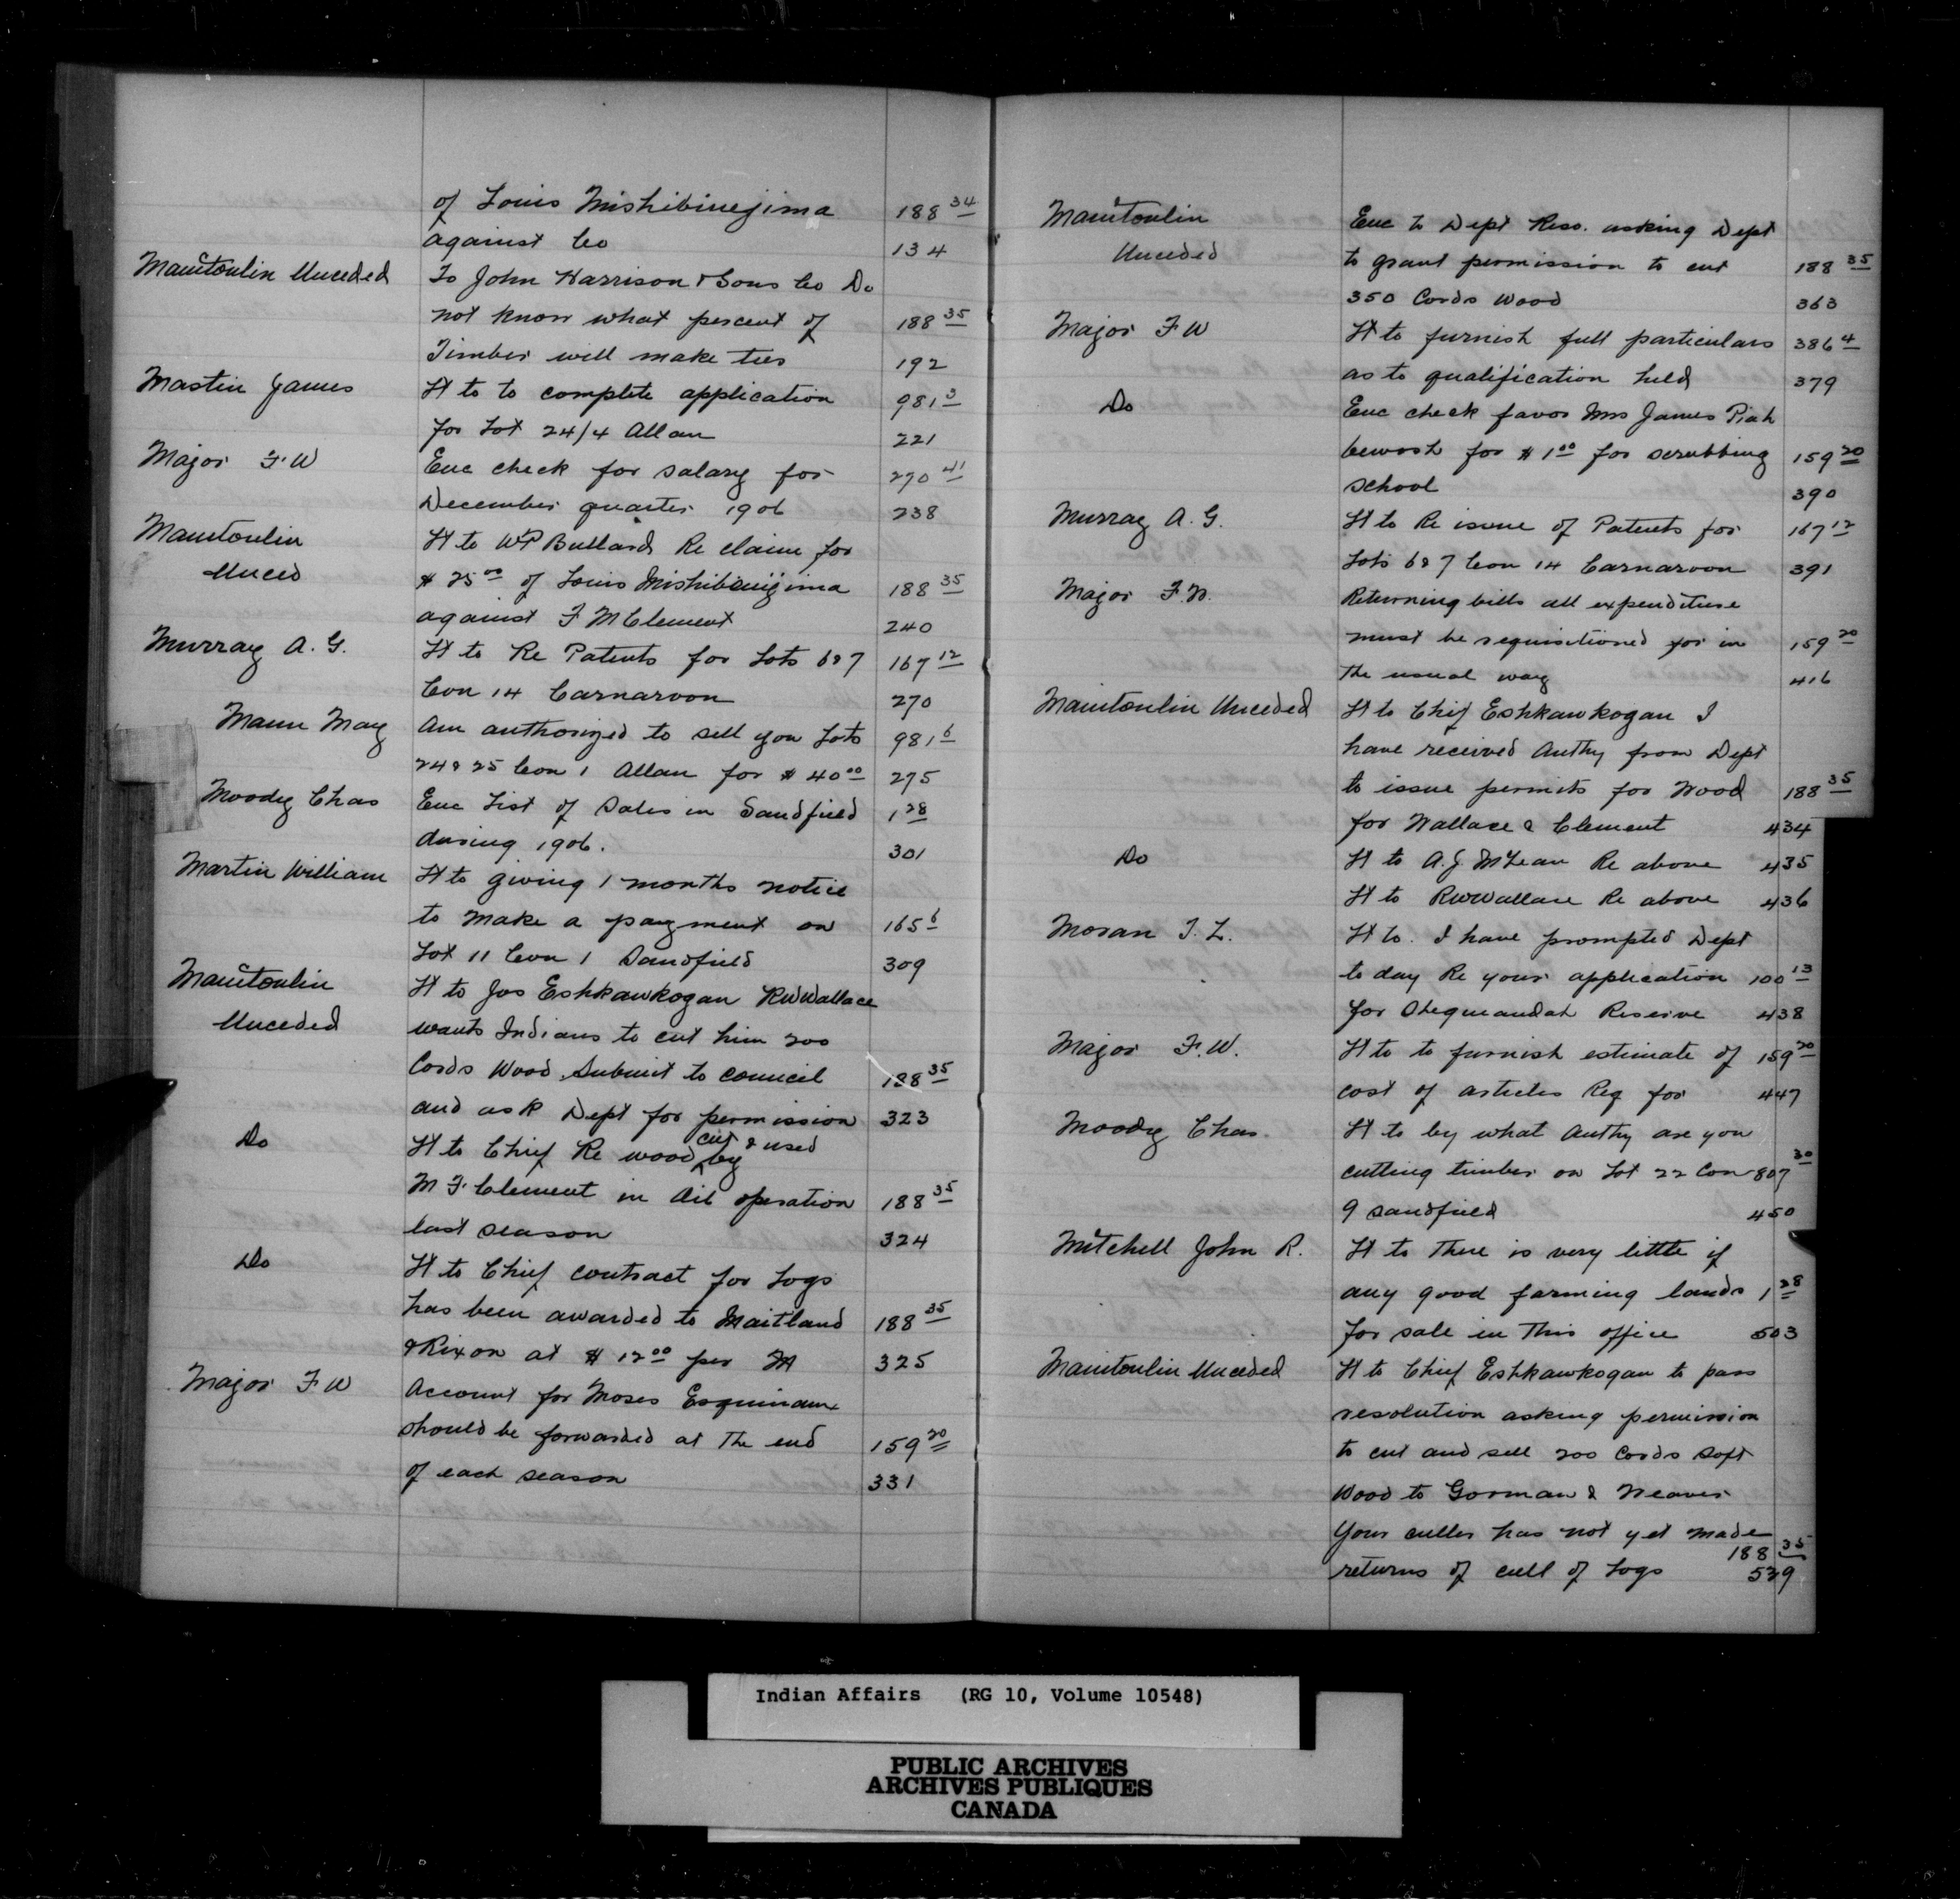 of Louis Mishibinejima 188 34
against Co 134
Manitoulin Unceded To John Harrison & Sons Co Do
not know what percent of 188 35
Timber will make ties 192
Mastin James Lt to to complete application 981 3
for Lot 24/4 Allan 221
Major F. W Enc check for salary for 270 41
December quarter 1906 238
Manitoulin Lt to WP Bullard Re claim for
Unced $ 25 00 of Louis Mishibinijima 188 35
against F M Clement 240
Murray A. G. Lt to Re Patents for Lots 6 & 7 167 12
Con 14 Carnarvon 270
Mann May Am authorized to sell you Lots 981 6
24 & 25 Con 1 Allan for $ 40 00 275
Moody Chas Enc List of Sales in Sandfield 1 28
during 1906. 301
Martin William Lt to giving 1 months notice
to make a payment on 165 6
Lot 11 Con 1 Sandfield 309
Manitoulin Lt to Jos Eshkawkogan RWWallace
Unceded wants Indians to cut him 200
Cords Wood Submit to council 188 35
and ask Dept for permission 323
Do Lt to Chief Re wood cut & used by
M F Clement in operation 188 35
last season 324
Do Lt to Chief contract for Logs
has been awarded to Maitland 188 35
& Rixon at $ 12 00 per M 325
Major F W Account for Moses
should be forwarded at the end 159 20
of each season 331
Manitoulin Enc to Dept Reso. asking Dept
Unceded to grant permission to cut 188 35
350 Cords Wood 363
Major F W Lt to furnish full particulars 386 4
as to qualification held 379
Do Enc check favor Mrs James Piah
bewash for $ 1 00 for scrubbing 159 20
school 390
Murray A. G. Lt to Re issue of Patents for 167 12
Lots 6 & 7 Con 14 Carnarvon 391
Major F. W. Returning bills all expenditure
must be requisitioned for in 159 20
the usual way 416
Manitoulin Unceded Lt to Chif Eshkawkogan I
have received Authy from Dept
to issue permits for Wood 188 35
for Wallace & Clement 434
Do Lt to A. J. McLean Re above 435
Lt to RWWallace Re above 436
Moran T. L. Lt to. I have prompted Dept
to day Re your application 100 13
for Shequandah Reserve 438
Major F. W. Lt to to furnish estimate of 159 20
cost of articles Req for 447
Moody Chas. Lt to by what Authy are you
cutting timber on Lot 22 Con 807 30
9 Sandfield 450
Mitchell John R. Lt to There is very little if
any good farming lands 1 28
for sale in this office 503
Manitoulin Unceded Lt to Chief Eshkawkogan to pass
resolution asking permission
to cut and sell 200 Cords Soft
Wood to Gorman & Weaver
Your culler has not yet made
188 35
returns of cull of Logs 539
Indian Affairs (RG 10, Volume 10548)
PUBLIC ARCHIVES
ARCHIVES PUBLIQUES
CANADA